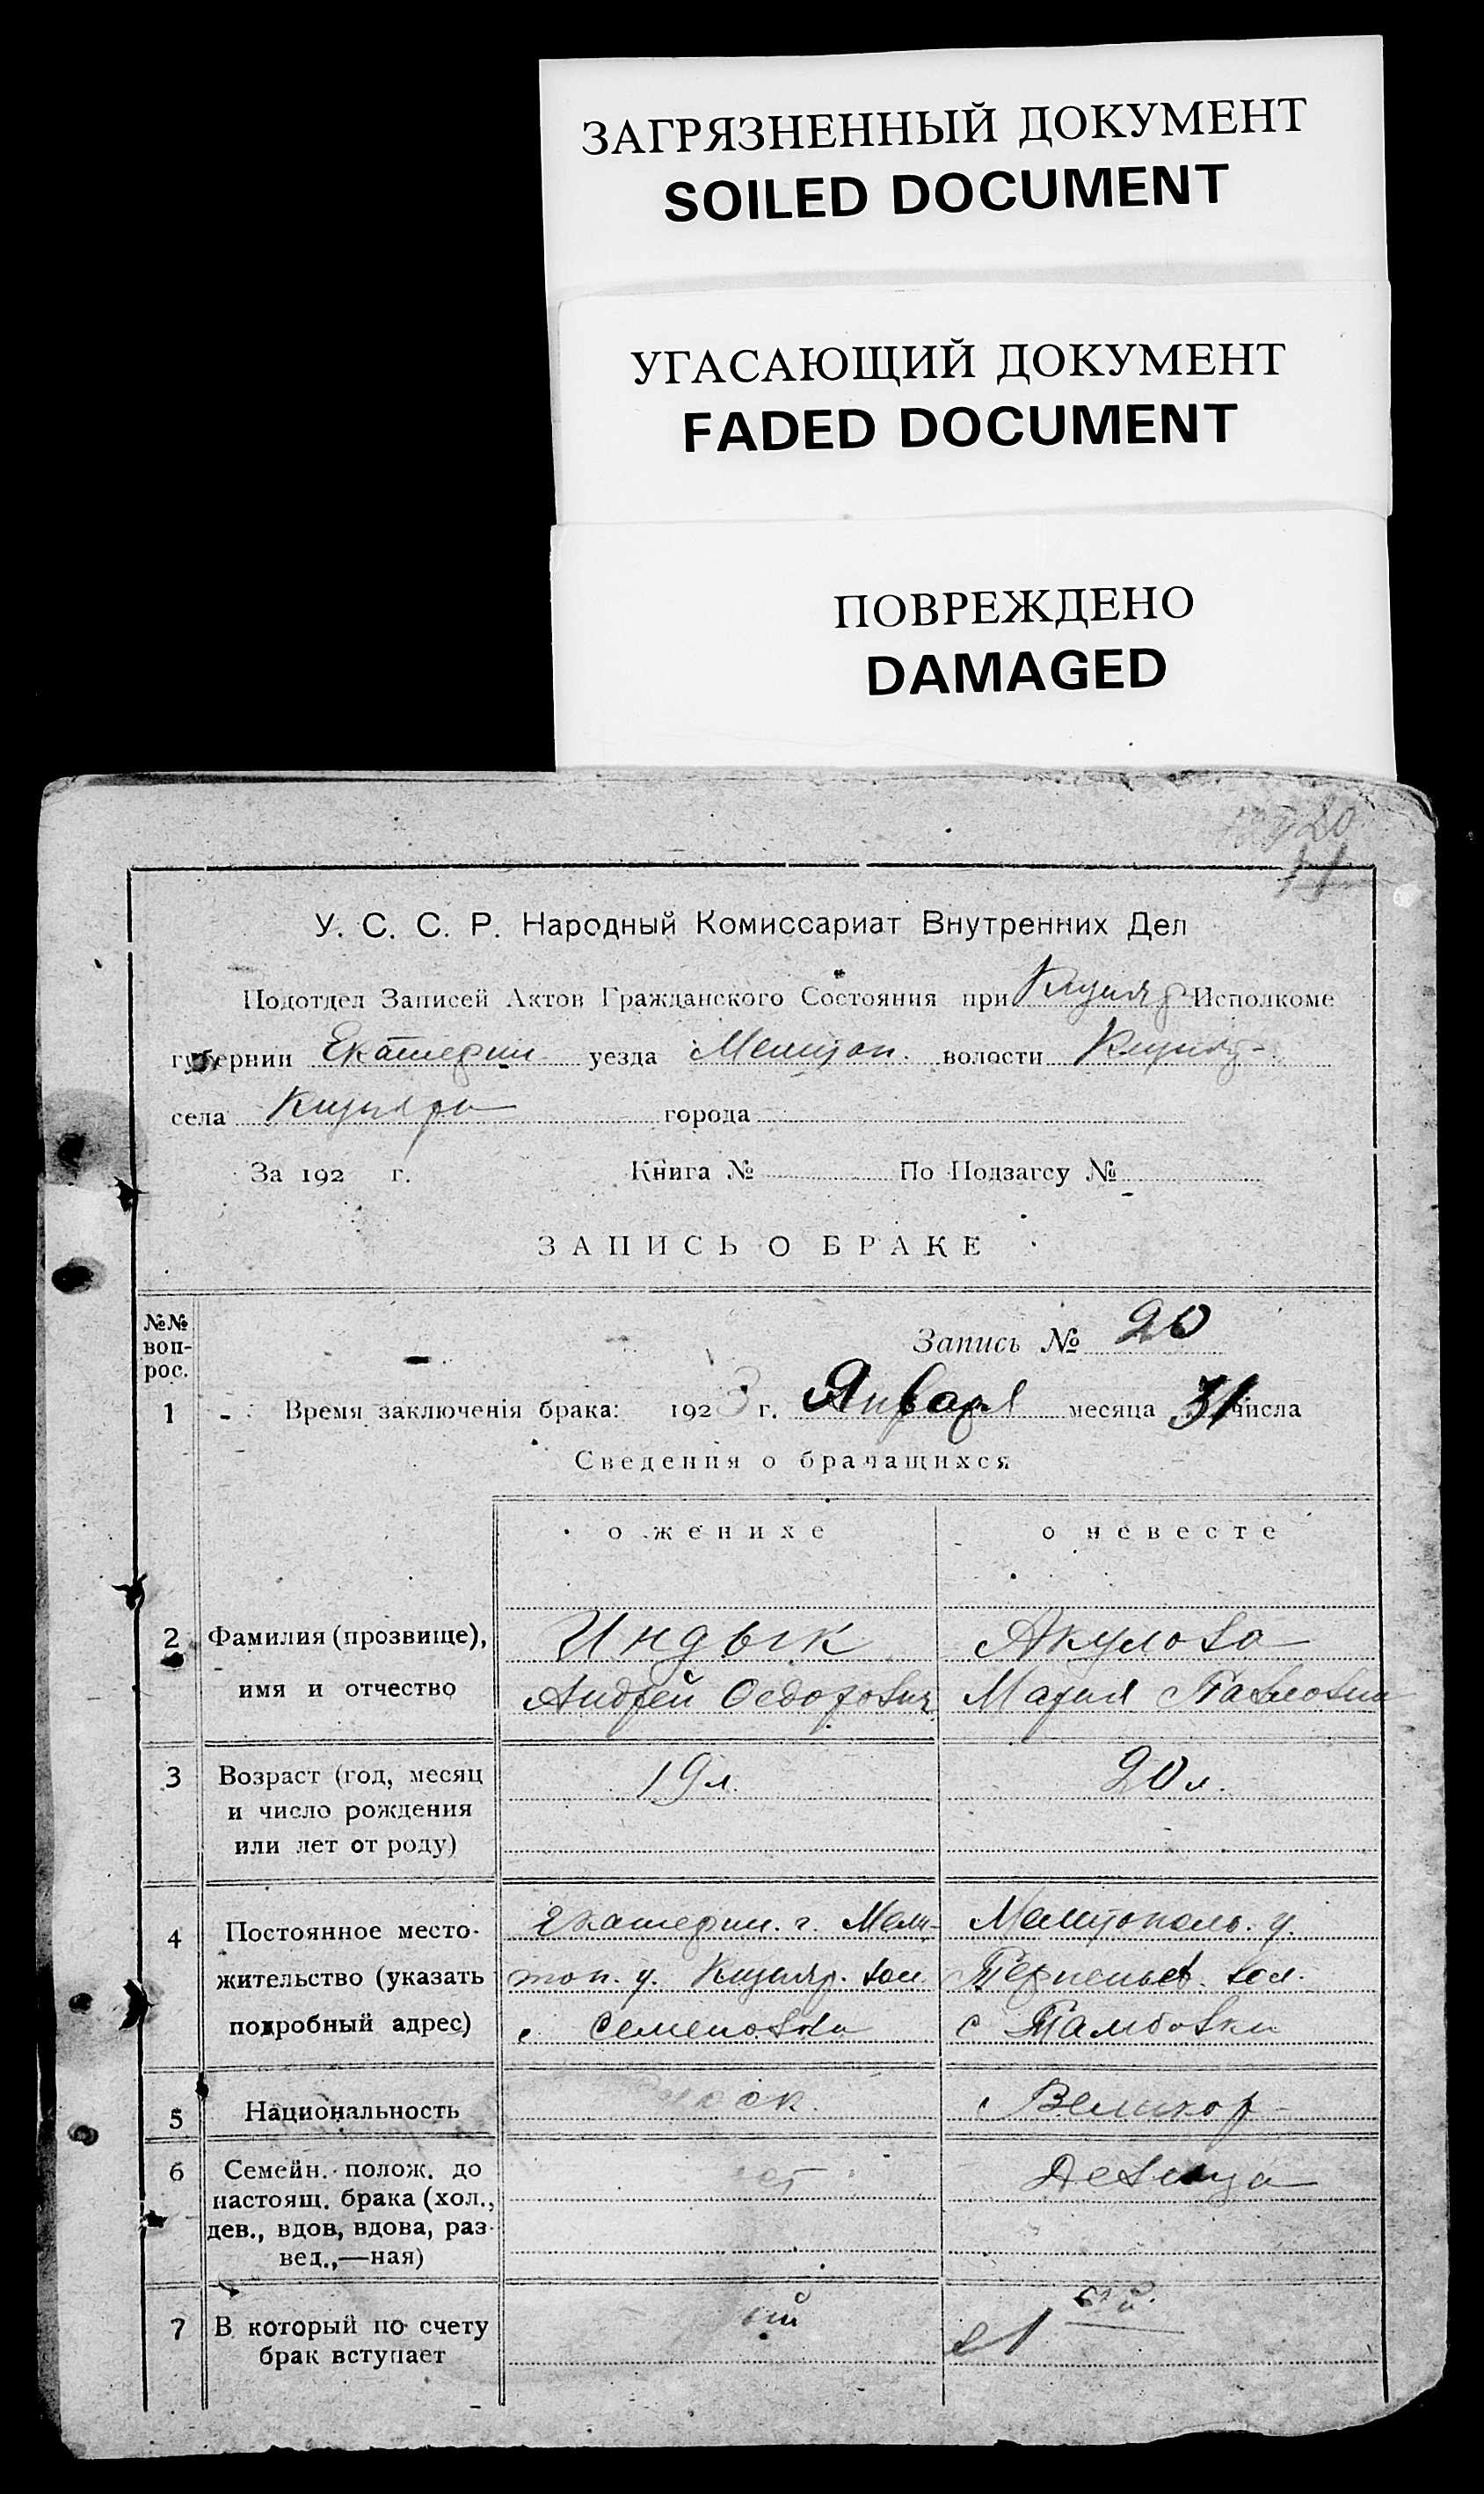 ЗАГРЯЗНЕННЫЙ ДОКУМЕНТ
SOILED DOCUMENT
УГАСАЮЩИЙ ДОКУМЕНТ
FADED DOCUMENT
ПОВРЕЖДЕНО
DAMAGED
20
11
У. С. С. Р. Народный Комиссариат Внутренних Дел
Подотдел Записей Актов Гражданского Состояния при Кизияр Исполкоме
губернии Екатерин. уезда Мелитоп. волости Кизияр-
села Кизияры города
За 192 г. Книга № По Подзагсу №
ЗАПИСЬ О БРАКЕ
№№ воп-рос.
Запись № 20
1 Время заключенія брака: 1923 г. Января месяца 31 числа
Сведения о брачащихся
о женихе о невесте
2 Фамилия (прозвище), Индык Акулова
имя и отчество Андрей Федорович Мария Павловна
3 Возраст (год, месяц 19 л. 20 л.
и число рождения
или лет от роду)
4 Постоянное место- Екатерин. г. Мели- Мелитополь. у.
жительство (указать топ. у. Кизияр. вол. Терпеньев. вол.
подробный адрес) с Семеновки с Тамбовки
5 Национальность Великор-
6 Семейн. полож. до Девица
настоящ. брака (хол.,
дев., вдов, вдова, раз-
вед.,—ная)
7 В который по счету ый в 1 ый
брак вступает